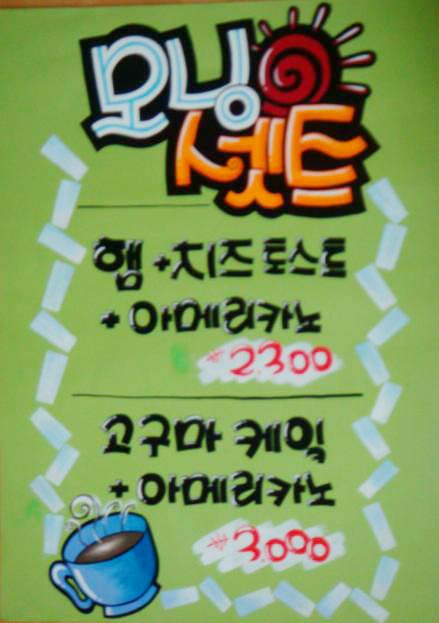 모닝
셋트
햄+치즈 토스트
+ 아메리카노
₩2.300
고구마 케익
+ 아메리카노
₩3.000